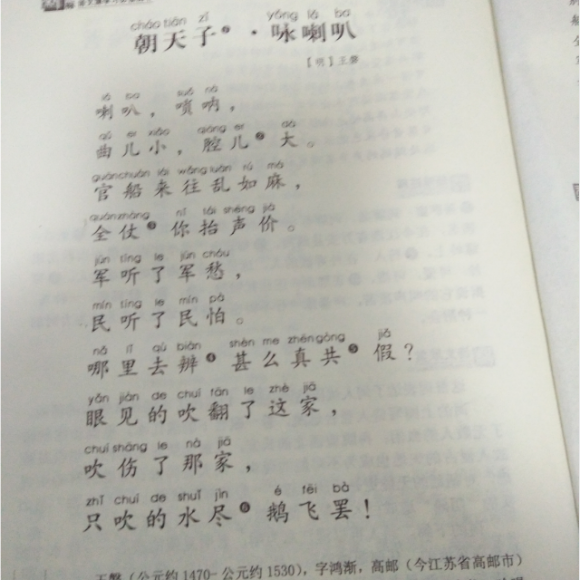 cháo tiān zǐ yǒng lǎ ba
朝天子②·咏喇叭
［明］王磐
lǎ ba suǒ nà
喇叭，唢呐，
qǔ er xiǎo qiāng er dà
曲儿小，腔儿②大。
guānchuán lái wǎng luàn rú má
官船来往乱如麻，
quánzhàng nǐ tái shēng jià
全仗③你抬声价。
jūn tīng le jūn chóu
军听了军愁，
mín tīng le mín pà
民听了民怕。
nǎ lǐ qù biàn shèn me zhēngòng jiǎ
哪里去辨④甚么真共⑤假？
yǎn jiàn de chuī fān le zhè jiā
眼见的吹翻了这家，
chuī shāng le nà jiā
吹伤了那家，
zhǐ chuī de shuǐ jìn é fēi bà
只吹的水尽⑥鹅飞罢！
王磐（公元约1470-公元约1530），字鸿渐，高邮（今江苏省高邮市）